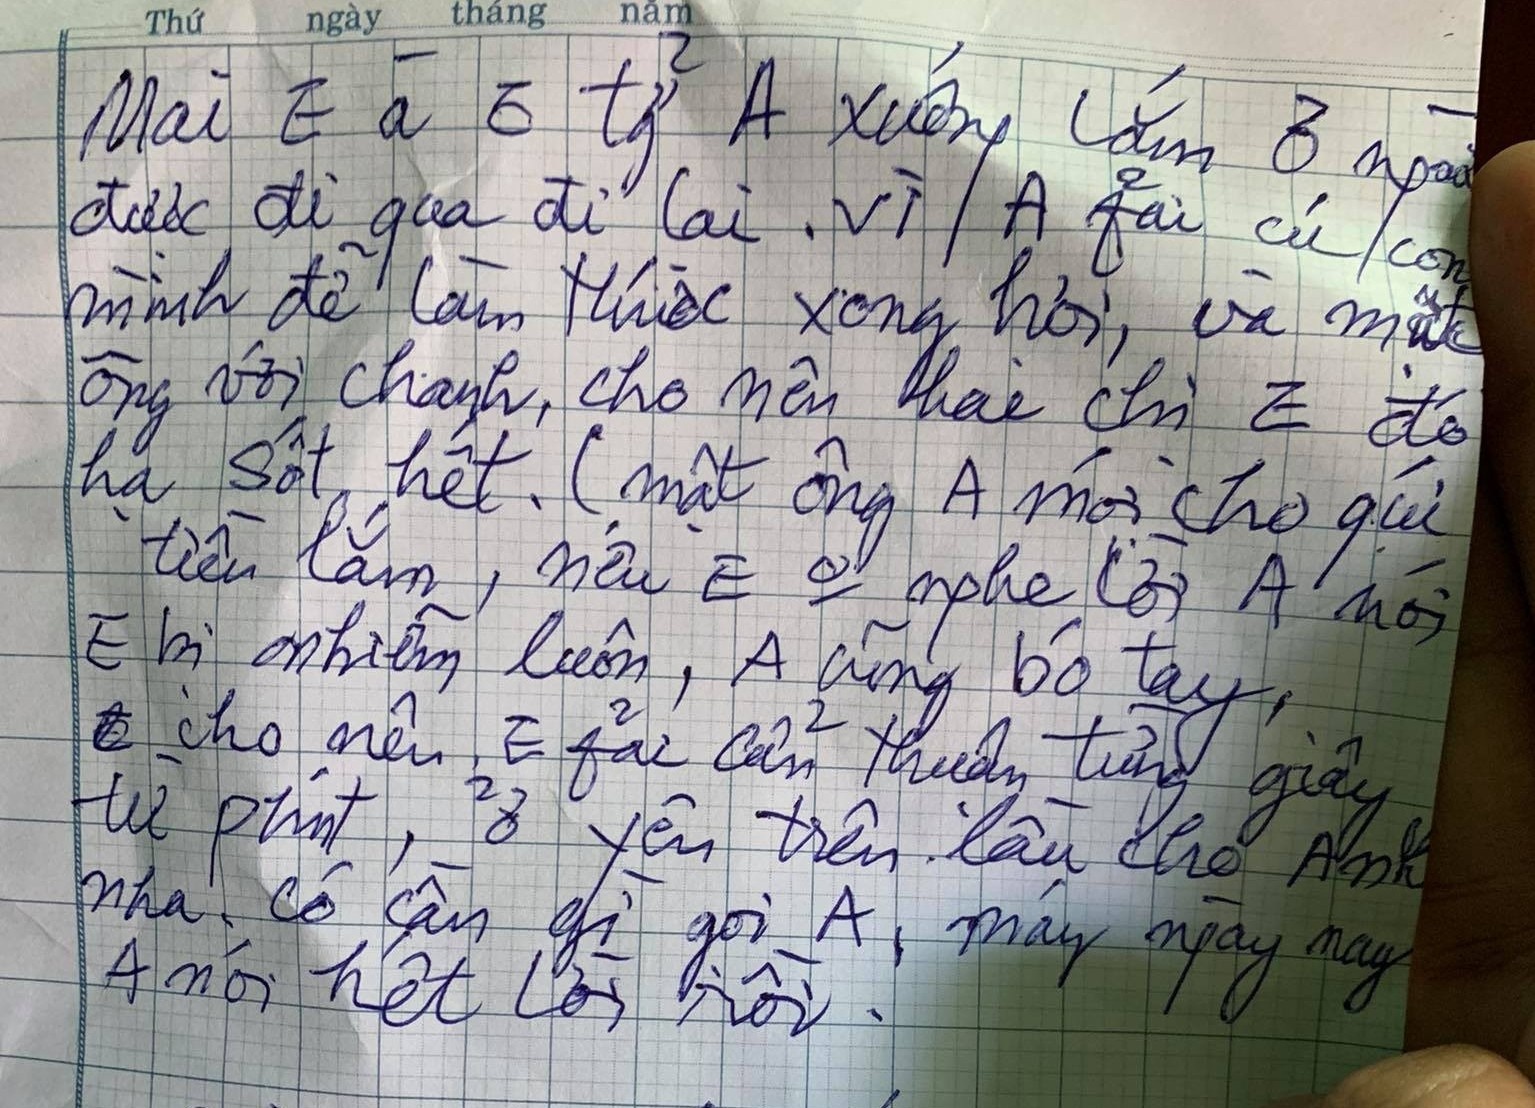 Thứ ngày tháng năm
Mai E à E tỷ A xuống lắm ở ngoài
được đi qua đi lại. Vì A fải cú con
mình để làm thuốc xong hơi, và mật
ông với chanh, cho nên thai chi E đó
hạ sốt hết. (mật ông A mới cho gửi
tiền lắm, nếu E o nghe lời A nói
E bị nhiễm luôn, A cũng bó tay,
cho nên E fải cẩn thuân từng giây
từ phút, ở yên trên lầu cho Anh
nha. có cần gì gọi A, mấy ngày nay
A nói hết lời rồi.